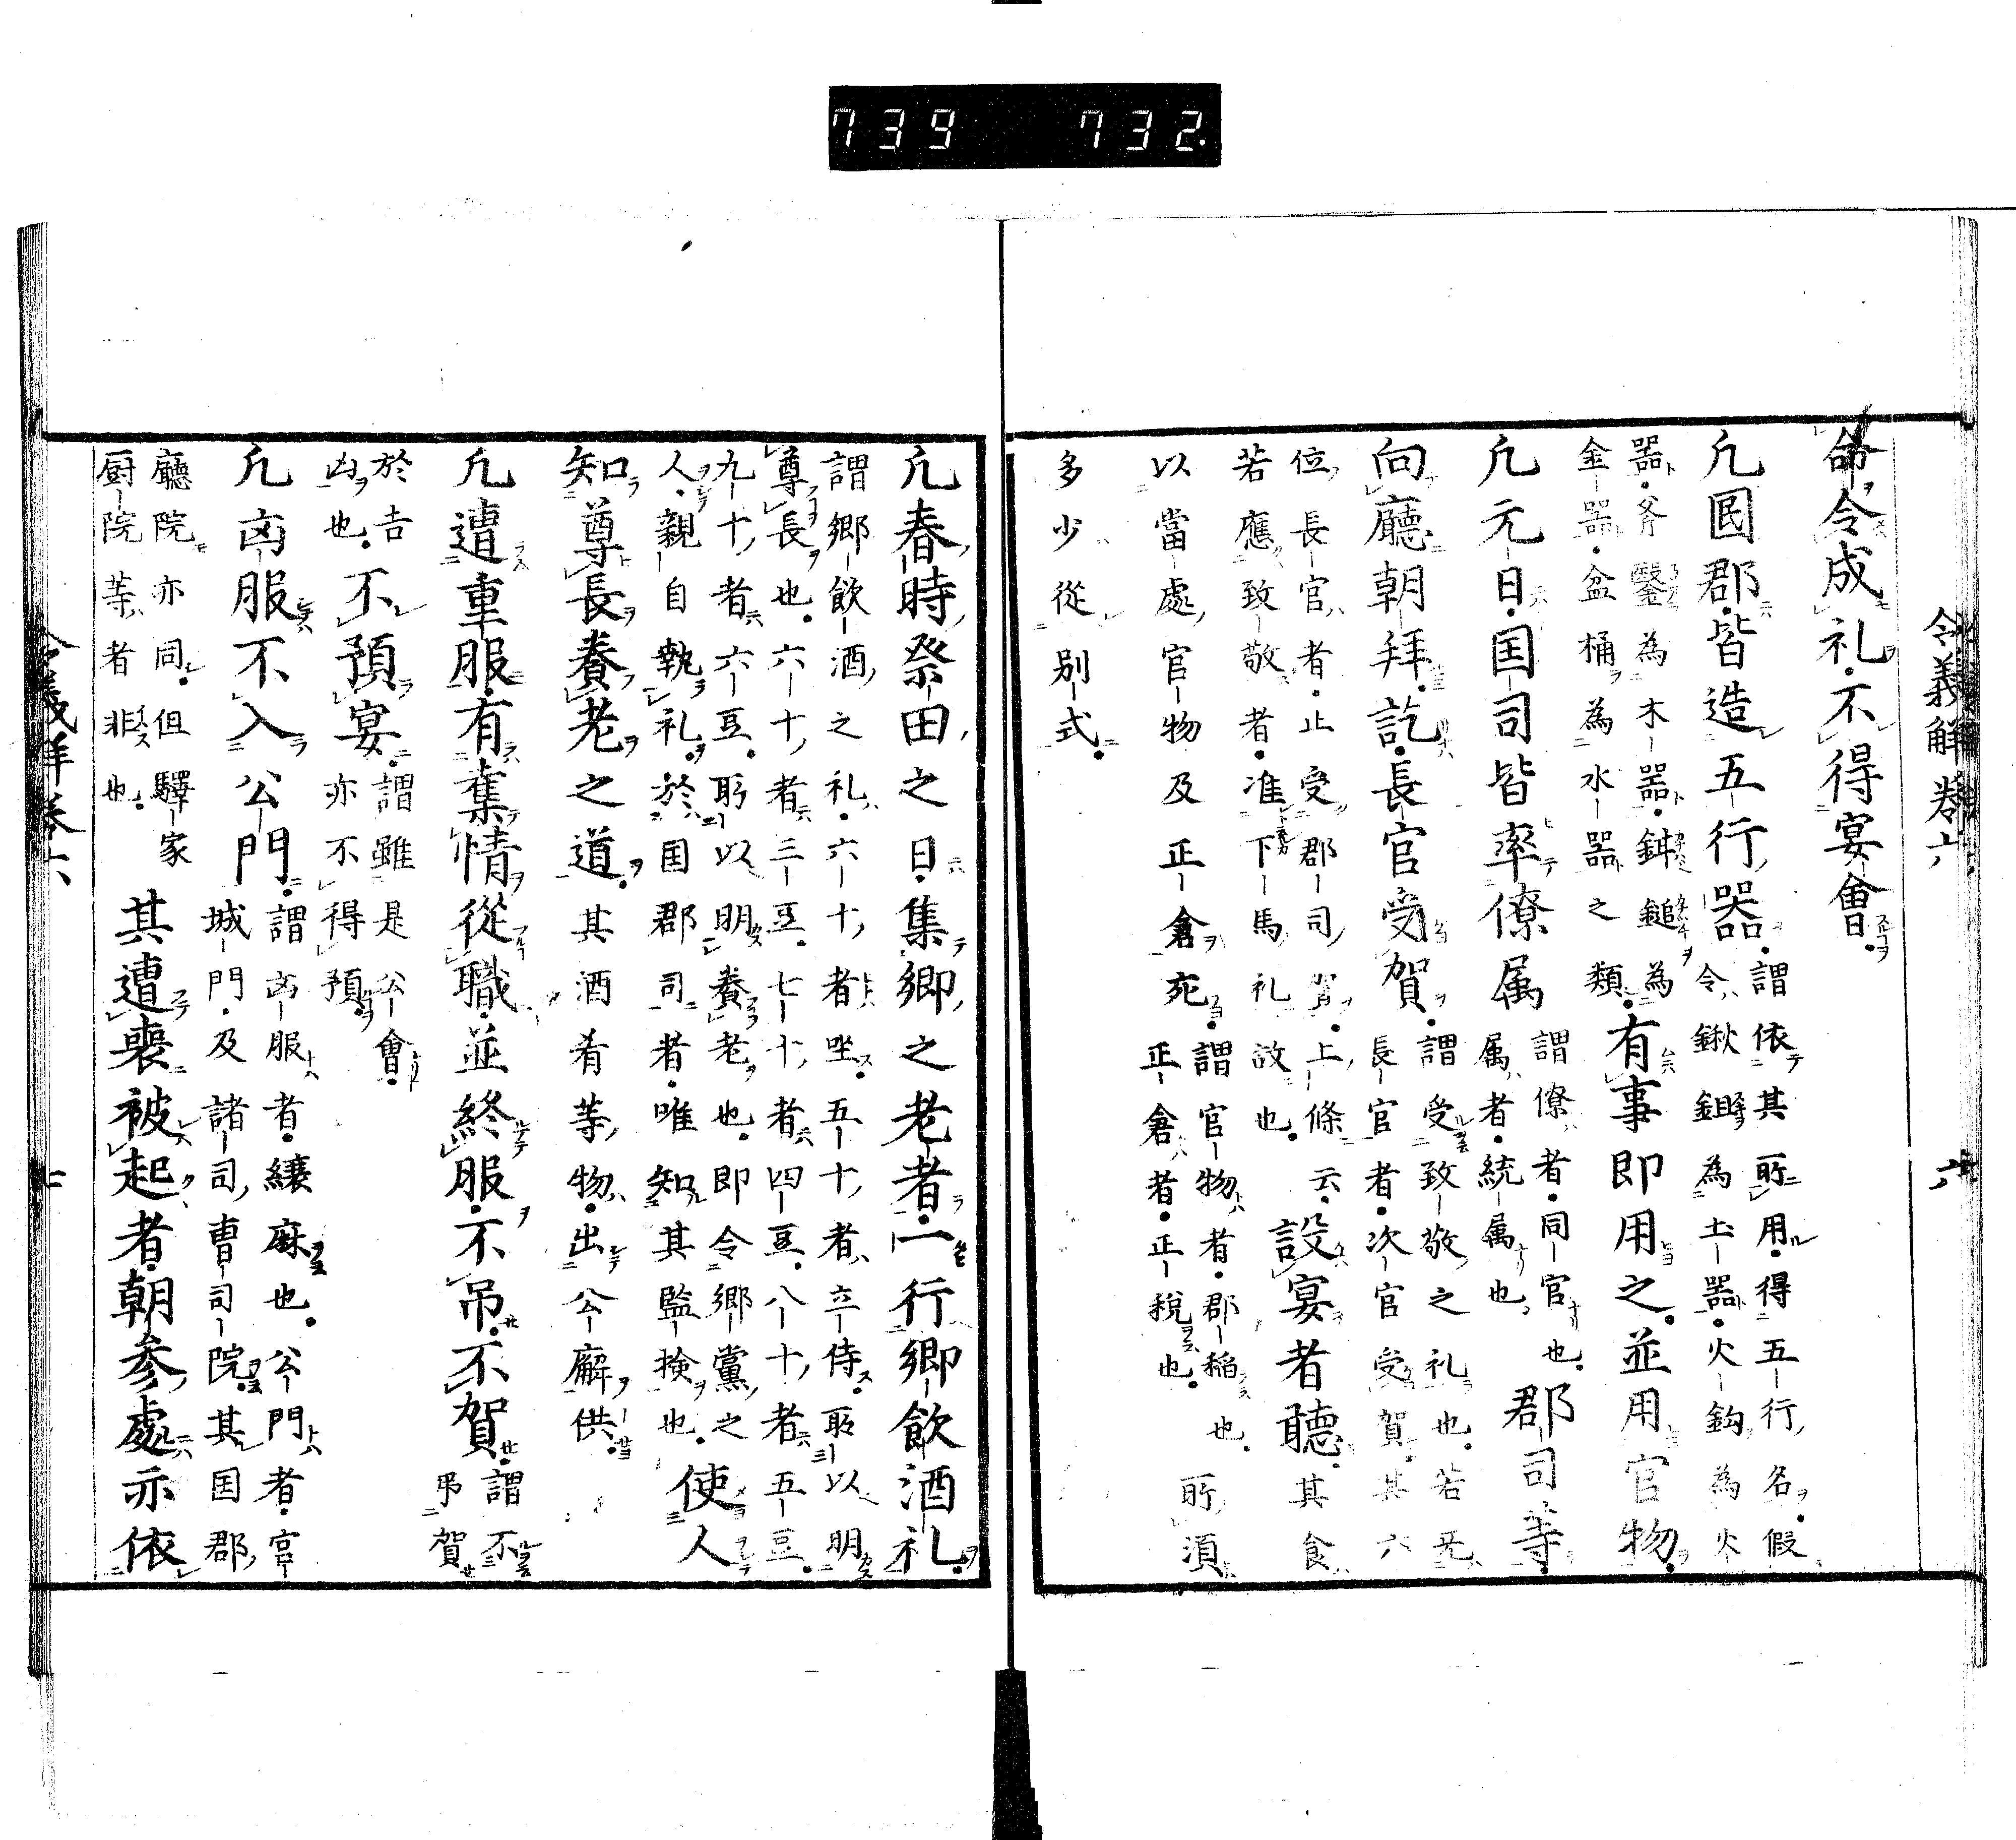 令義解卷六　六
命令成礼不得宴會
凡囻郡皆造五行器
謂依其所用得五行名假
令鍬鉏為土器火鈎為火
器斧鑿為木器鉺鎚為
金器盆桶為水器之類
有事即用之並用官物
凡元日囯司皆率僚属
謂僚者同官也
属者統属也
郡司等
向廳朝拜訖長官受賀
謂受致敬之礼也若无
長官者次官受賀其六
位長官者止受郡司賀上條云
若應致敬者准下馬礼故也
設宴者聽其食
以當處官物及正倉宛
謂官物者郡稲也
正倉者正税也
所須
多少從別式
凡春時祭田之日集郷之老者一行郷飲酒礼
謂郷飲酒之礼六十者坐五十者立侍所以明
尊長也六十者三豆七十者四豆八十者五豆
九十者六豆所以明養老也即令郷黨之
人親自執礼於囯郡司者唯知其監撿也
使人
知尊長養老之道其酒肴等物出公廨供
凡遭重服有奪情從職並終服不吊不賀
謂不
弔賀
於吉
凶也
不預宴
謂雖是公會
亦不得預
凡凶服不入公門
謂凶服者縗麻也公門者宮
城門及諸司曹司院其囯郡
廳院亦同但驛家
厨院等者非也
其遭喪被起者朝参處亦依
令義解卷六　七